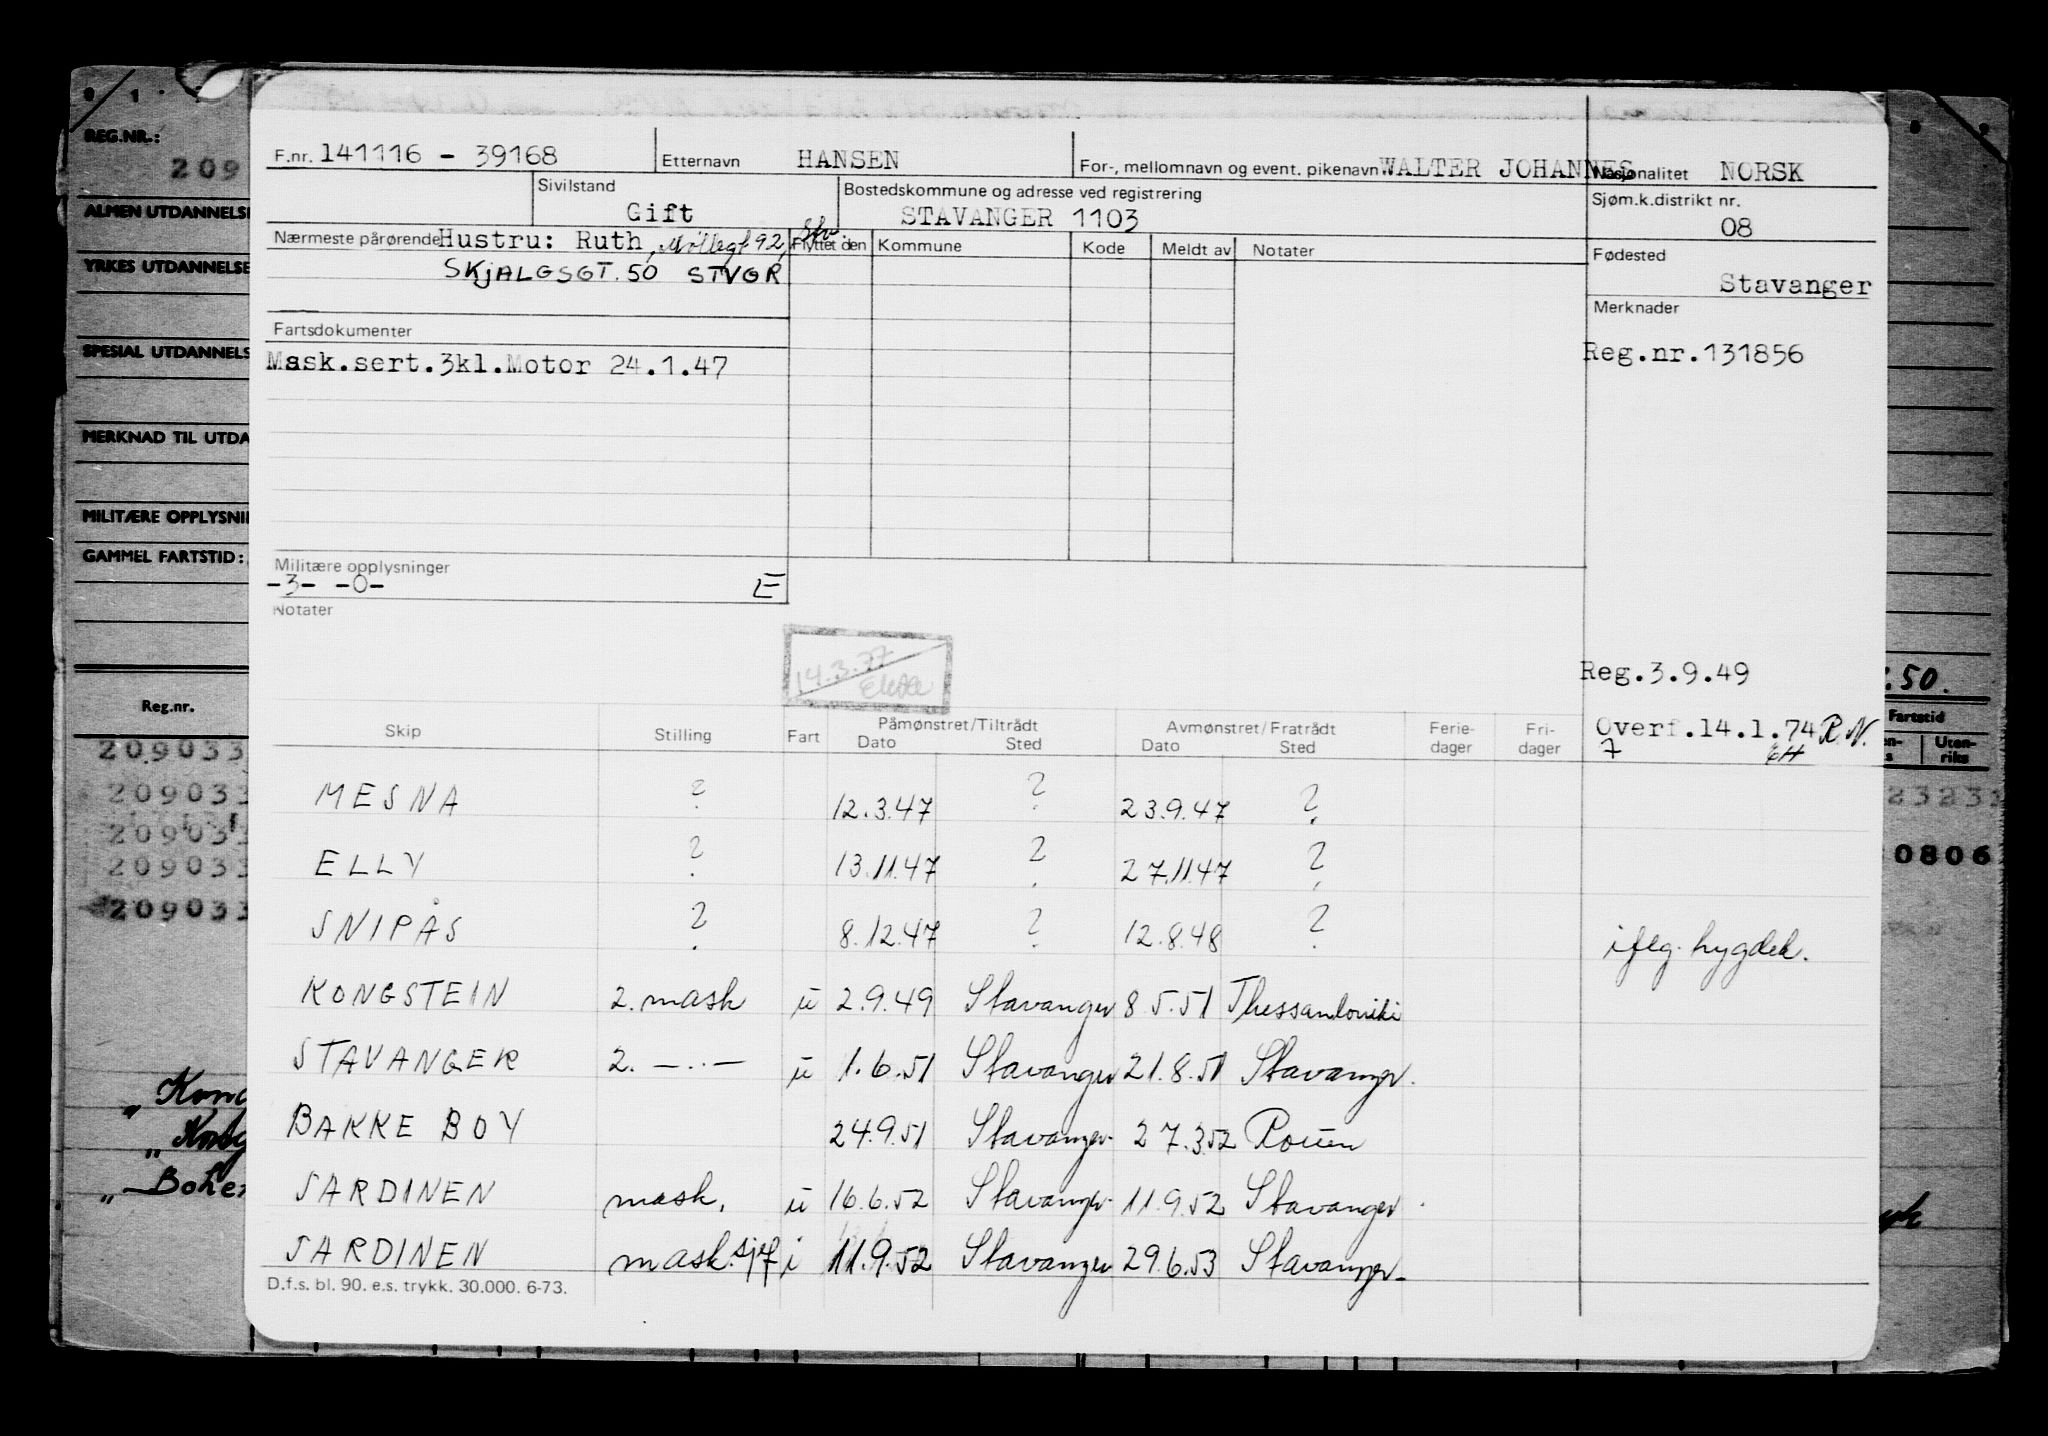 REG.NR.:
209
ALMEN UTDANNELSE
YRKES UTDANNELSE
SPESIAL UTDANNELS
MERKNAD TIL UTDA
MILITÆRE OPPLYSNI
GAMMEL FARTSTID:
Reg.nr.
209033
209033
209033
209033
209033
F.nr. 141116 - 39168
Etternavn HANSEN
For-, mellomnavn og event. pikenavn WALTER JOHANNES
Nasjonalitet NORSK
Sivilstand
Gift
Bostedskommune og adresse ved registrering
STAVANGER 1103
Sjøm.k.distrikt nr.
08
Nærmeste pårørende Hustru: Ruth, Møllegt 92, Stv.
SKJALGSGT. 50 STVGR
Flyttet den Kommune Kode Meldt av Notater
Fødested
Stavanger
Merknader
Reg.nr.131856
Fartsdokumenter
Mask.sert.3kl.Motor 24.1.47
Militære opplysninger
-3- -0- E
Notater
14.3.77
Reg.3.9.49
Overf.14.1.74 R.N.
7
Skip Stilling Fart Påmønstret/Tiltrådt Dato Sted Avmønstret/Fratrådt Dato Sted Ferie-dager Fri-dager
MESNA ? 12.3.47 ? 23.9.47 ?
ELLY ? 13.11.47 ? 27.11.47 ?
SNIPÅS ? 8.12.47 ? 12.8.48 ? iflg. hygded.
KONGSTEIN 2. mask u 2.9.49 Stavanger 8.5.51 Thessanloniki
STAVANGER 2. -..- u 1.6.51 Stavanger 21.8.51 Stavanger.
BAKKE BOY 24.9.51 Stavanger 27.3.52 Rouen
SARDINEN mask. u 16.6.52 Stavanger 11.9.52 Stavanger
SARDINEN mask.sjef i 11.9.52 Stavanger 29.6.53 Stavanger
D.f.s. bl. 90. e.s. trykk. 30.000. 6-73.
50.
Fartstid
Uten-riks
0806